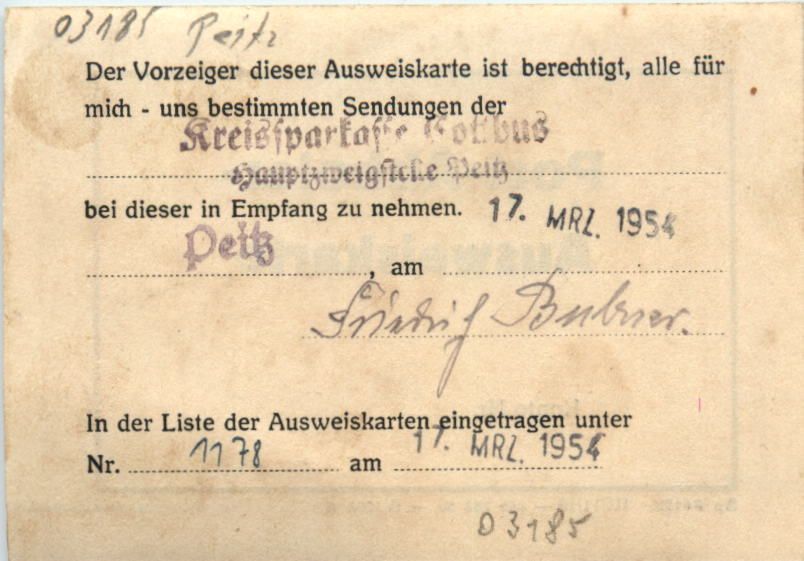 03185 Peitz
Der Vorzeiger dieser Ausweiskarte ist berechtigt, alle für
mich - uns bestimmten Sendungen der
Kreissparkasse Cottbus
Hauptzweigstelle Peitz
bei dieser in Empfang zu nehmen. 17. MRZ. 1954
Peitz
, am
Friedrich Bubner.
In der Liste der Ausweiskarten eingetragen unter
Nr. 1178 am 17. MRZ. 1954
03185